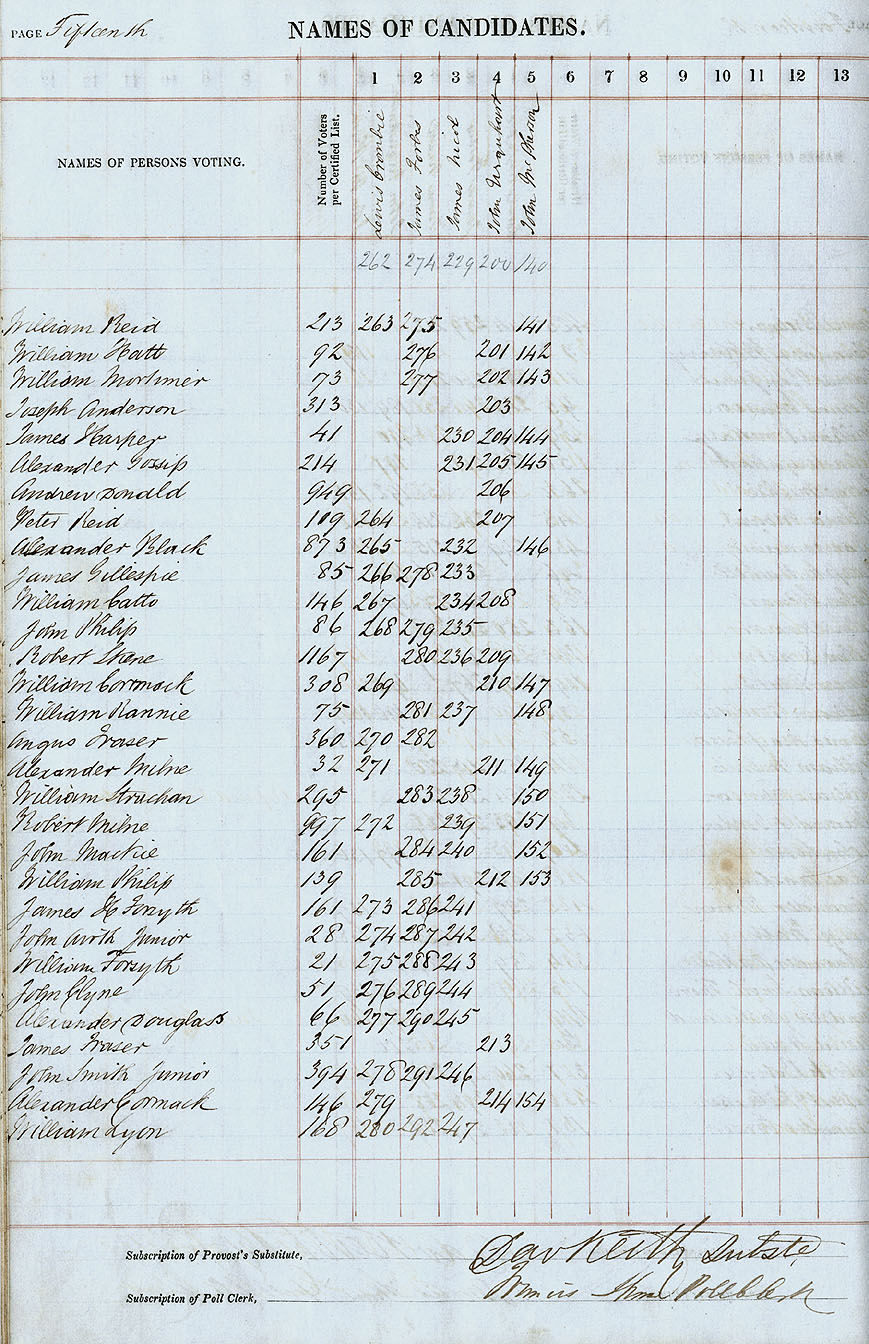 PAGE Fifteenth NAMES OF CANDIDATES.
1 2 3 4 5 6 7 8 9 10 11 12 13
NAMES OF PERSONS VOTING. Number of Voters per Certified List. Lewis Crombie James Forbes James Nicol John Urquhart John McPherson
262 274 229 200 140
William Reid 213 263 275 141
William Hatt 92 276 201 142
William Mortimer 73 277 202 143
Joseph Anderson 313 203
James Harper 41 230 204 144
Alexander Gossip 214 231 205 145
Andrew Donald 949 206
Peter Reid 109 264 207
Alexander Black 873 265 232 146
James Gillespie 85 266 278 233
William Catto 146 267 234 208
John Philip 86 268 279 235
Robert Skene 1167 280 236 209
William Cormack 308 269 210 147
William Rannie 75 281 237 148
Angus Fraser 360 270 282
Alexander Milne 32 271 211 149
William Strachan 295 283 238 150
Robert Milne 997 272 239 151
John Mackie 161 284 240 152
William Philip 139 285 212 153
James H Forsyth 161 273 286 241
John Junior 28 274 287 242
William Forsyth 21 275 288 243
John Clyne 51 276 289 244
Alexander Douglass 66 277 290 245
James Fraser 351 213
John Smith Junior 394 278 291 246
Alexander Cormack 146 279 214 154
William Lyon 168 280 292 247
Subscription of Provost's Substitute, Dav Keith Subste,
Subscription of Poll Clerk, Francis Poll Clerk